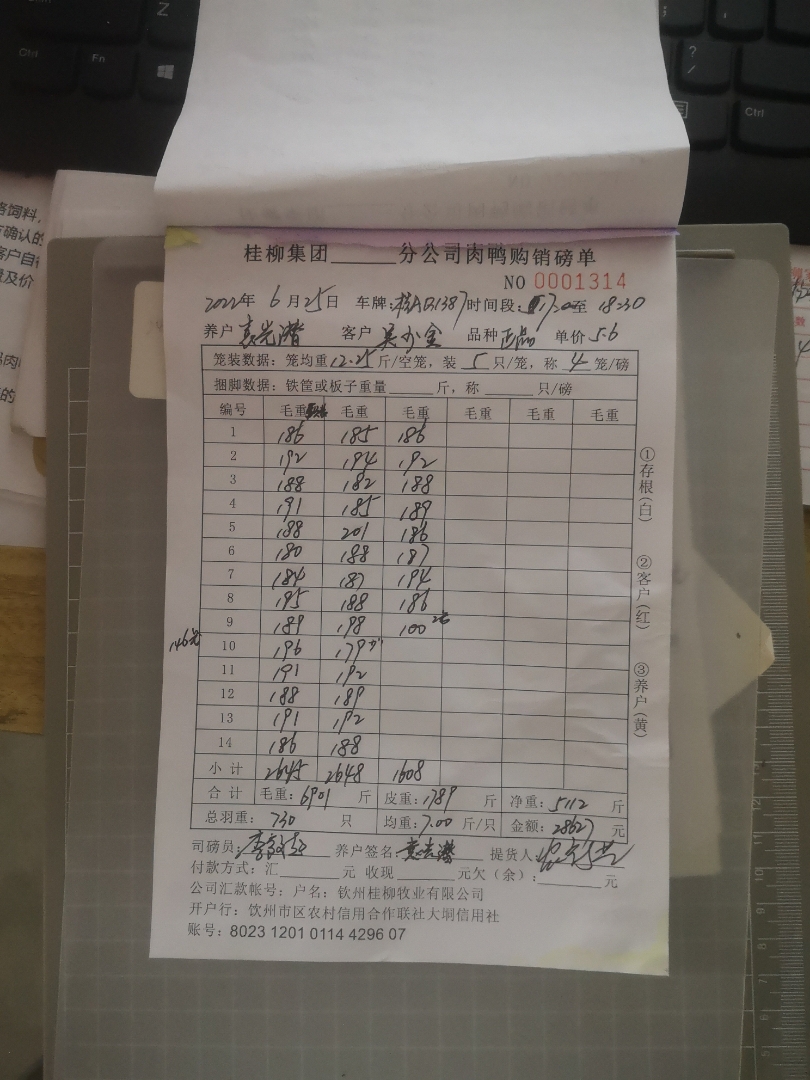 Z
Ctrl
Fn
?
/
Ctrl
格饲料,
方确认的
客户自
量及价
桂柳集团______分公司肉鸭购销磅单
NO 0001314
2022年 6月25日 车牌:桂AD1387 时间段: 1720至 1830
养户 袁光潜 客户 吴少金 品种 正品 单价 5.6
笼装数据: 笼均重 12.25 斤/空笼, 装 5 只/笼, 称 4 笼/磅
捆脚数据: 铁筐或板子重量______斤, 称______只/磅
编号 毛重 毛重 毛重 毛重 毛重 毛重
1 186 185 186
2 192 194 192
3 188 182 188
4 191 185 189
5 188 201 186
6 180 188 187
7 184 187 194
8 195 188 186
9 189 198 100 2笼
146笼
10 196 179
11 191 192
12 188 189
13 191 192
14 186 188
小计 2645 2648 1608
合计 毛重: 6901 斤 皮重: 1789 斤 净重: 5112 斤
总羽重: 730 只 均重: 7.00 斤/只 金额: 28627 元
司磅员: 养户签名: 袁光潜 提货人:
付款方式: 汇______元 收现______元欠(余):______元
公司汇款帐号: 户名: 钦州桂柳牧业有限公司
开户行: 钦州市区农村信用合作联社大垌信用社
账号: 8023 1201 0114 4296 07
①存根(白)
②客户(红)
③养户(黄)